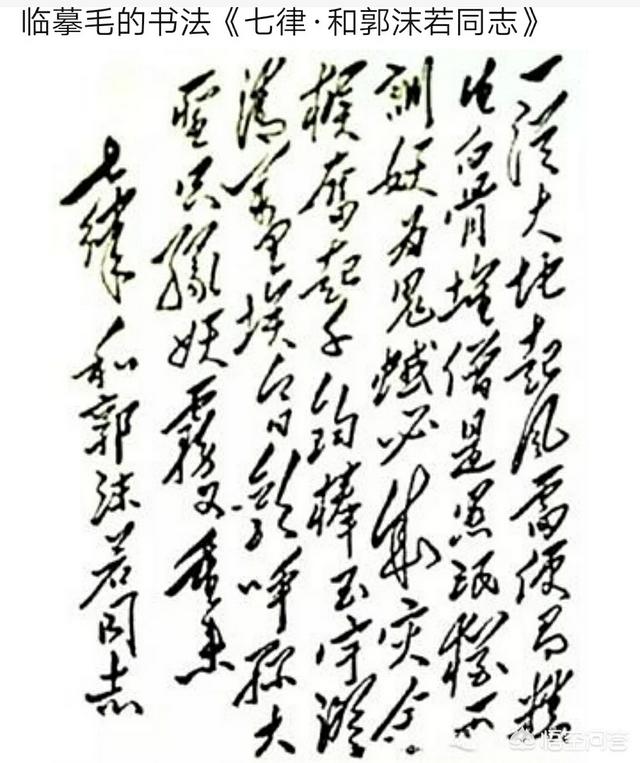 临摹毛的书法《七律·和郭沫若同志》
一從大地起风雷便有精
生白骨堆僧是愚氓猶可
訓妖为鬼蜮必成灾金
猴奮起千鈞棒玉宇澄
清萬里埃今日歡呼孫大
聖只緣妖霧又重来
七律 和郭沫若同志
悟空问答